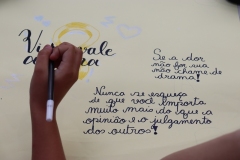 Se a dor
não for sua
não chame de
drama!
Nunca se esqueça
de que você importa
muito mais do que a
opinião e o julgamento
dos outros!